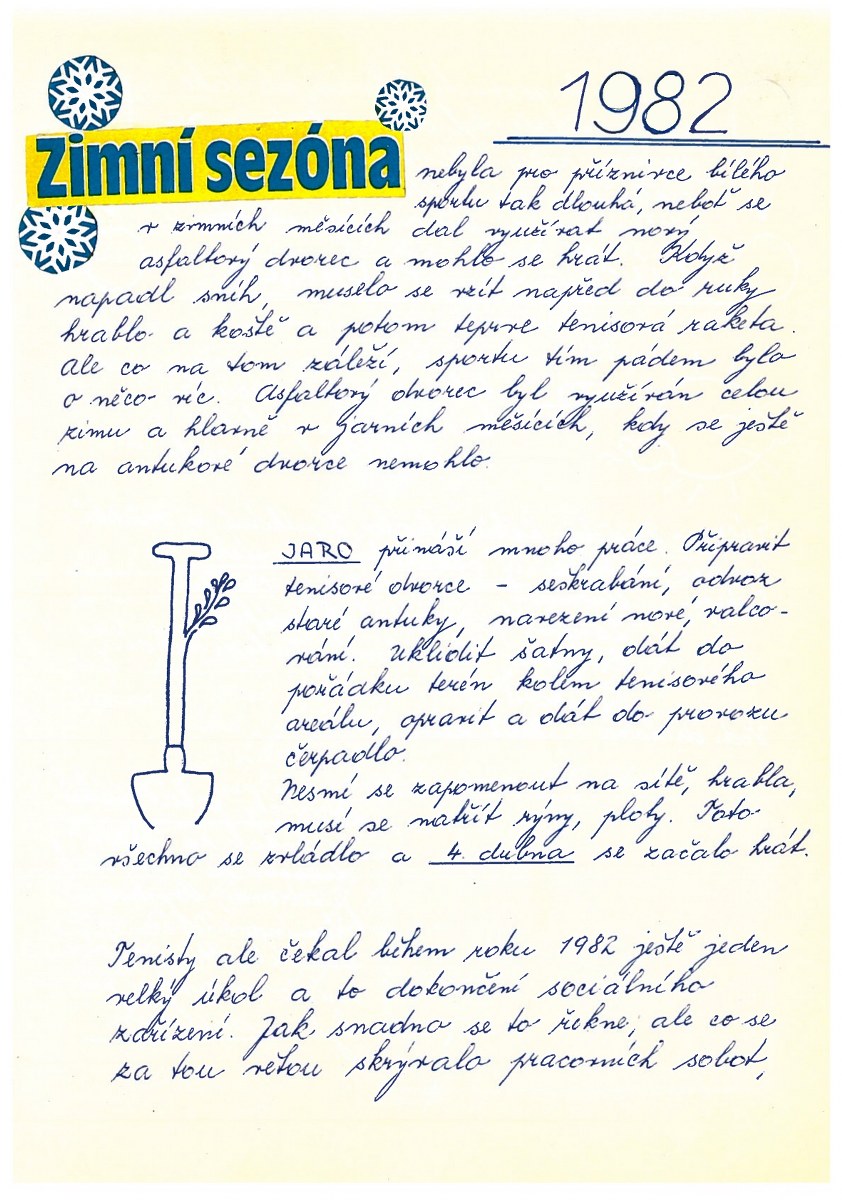 1982
Zimní sezóna
nebyla pro příznivce bílého
sportu tak dlouhá, neboť se
v zimních měsících dal využívat nový
asfaltový dvorec a mohlo se hrát. Když
napadl sníh, muselo se vzít napřed do ruky
hrablo a koště a potom teprve tenisová raketa.
Ale co na tom záleží, sportu tím pádem bylo
o něco víc. Asfaltový dvorec byl využíván celou
zimu a hlavně v jarních měsících, kdy se ještě
na antukové dvorce nemohlo.
JARO přináší mnoho práce. Připravit
tenisové dvorce - seškrabání, odvoz
staré antuky, navezení nové, valco-
vání. Uklidit šatny, dát do
pořádku terén kolem tenisového
areálu, opravit a dát do provozu
čerpadlo.
Nesmí se zapomenout na sítě, hrabla,
musí se natřít rýny, ploty. Toto
všechno se zvládlo a 4. dubna se začalo hrát.
Tenisty ale čekal během roku 1982 ještě jeden
velký úkol a to dokončení sociálního
zařízení. Jak snadno se to řekne, ale co se
za tou větou skrývalo pracovních sobot,